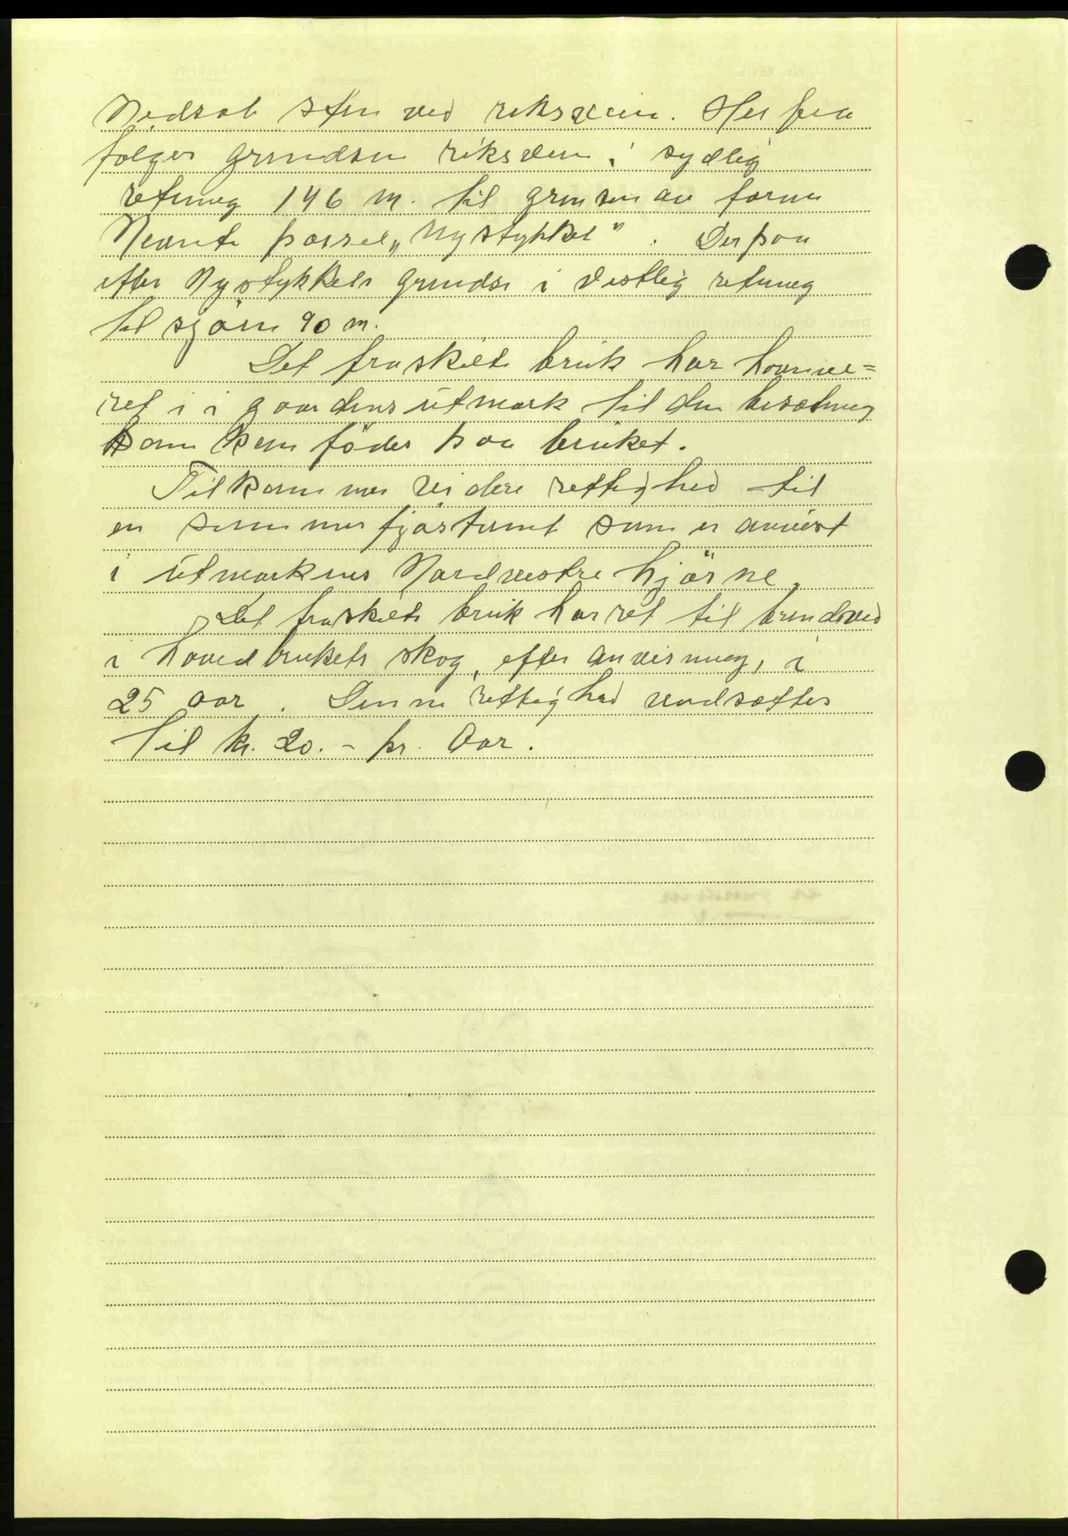 Nedsat sten ved riksveien. Her fra
følger grændsen riksveien i sydlig
retning 146 m. til grænsen av forru
Nevnte parsel „Nystykket“. Derpaa
efter Nystykkets grændse i vestlig retning
til sjøen 90 m.
Det fraskilte bruk har havne=
ret i i gaardens utmark til den besætning
som kan födes paa bruket.
Tilkommer videre rettighed til
en sommerfjøstomt som er anvist
i utmarkens Nordvestre hjörne.
Det fraskilte bruk har ret til brændeved
i hovedbrukets skog, efter anvisning, i
25 aar. Denne rettighed verdsættes
til kr. 20.- pr. Aar.